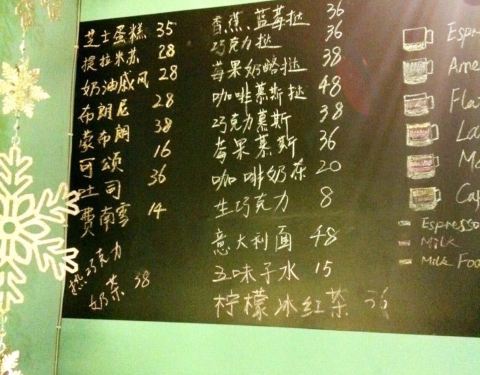 芝士蛋糕 35
提拉米苏 28
奶油戚风 28
布朗尼 28
蒙布朗 38
可颂 16
吐司 36
费南雪 14
热巧克力
奶茶 38
香蕉、蓝莓挞 36
巧克力挞 36
莓果奶酪挞 38
咖啡慕斯挞 48
巧克力慕斯 38
莓果慕斯 36
咖啡奶茶 20
生巧克力 8
意大利面 48
五味子水 15
柠檬冰红茶 36
Espr
Ame
Fla
La
Mo
Cap
Espresso
Milk
Milk Foa